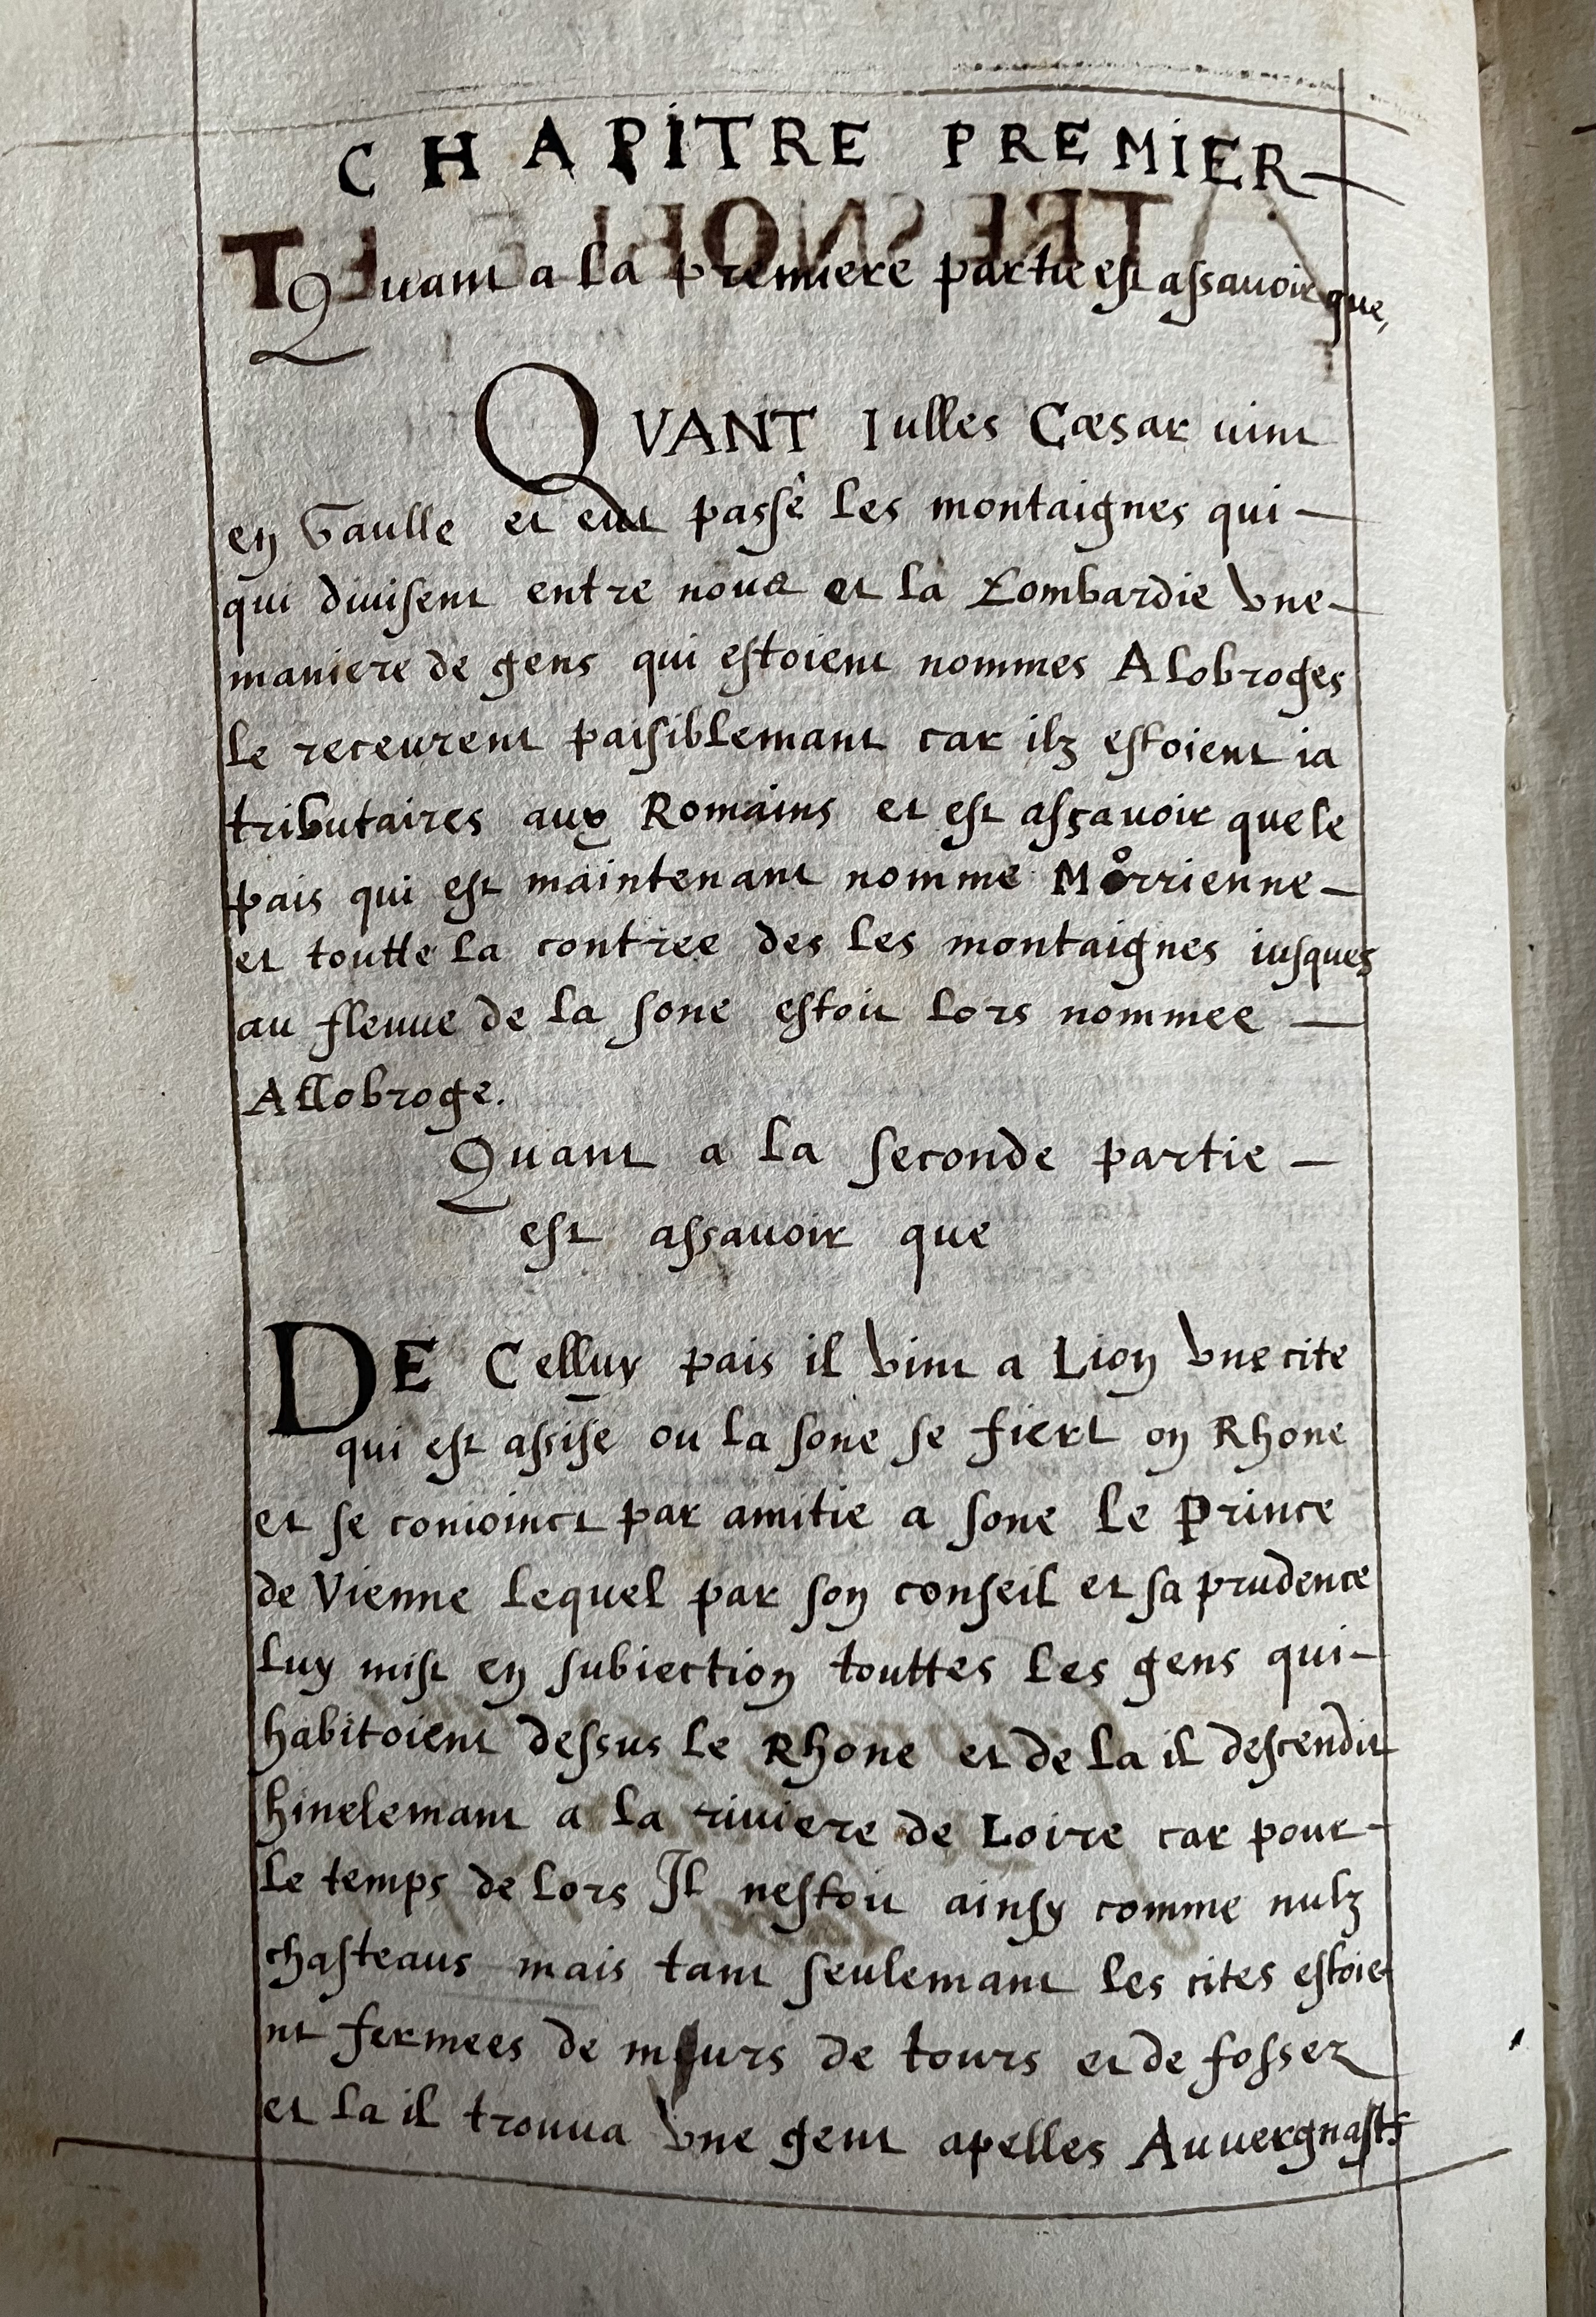 CHAPITRE PREMIER
Quant a la premiere partie est assavoir que,
QVANT Iulles Cæsar vint
en Gaulle et eut passé les montaignes qui
qui divisent entre nous et la Lombardie vne
maniere de gens qui estoient nommes Alobroges
le receurent paisiblemant car ilz estoient ia
tributaires aux Romains et est asçavoir que le
pais qui est maintenant nomme Morrienne
et toutte la contree des les montaignes iusques
au fleuue de la sone estoit lors nommee
Allobroge.
Quant a la seconde partie
est assavoir que
DE Celluy pais il vint a Lion vne cite
qui est assise ou la sone se fiert on Rhone
et se conioinct par amitie a sone le Prince
de Vienne lequel par son conseil et sa prudence
luy mist en subiection touttes les gens qui
habitoient dessus le Rhone et de la il descendit
hinelemant a la riviere de Loire car pour
le temps de lors Il nestoit ainsy comme nulz
chasteaus mais tant seulemant les cites estoie
nt fermees de murs de tours et de fossez
et la il trouua vne gent apelles Auvergnasts